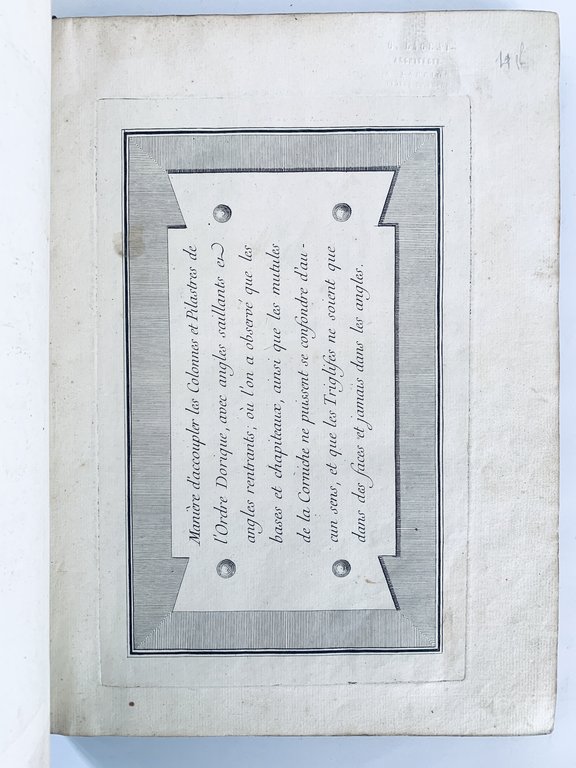 Manière d'accoupler les Colonnes et Pilastres de
l'Ordre Dorique, avec angles saillants &
angles rentrants; où l'on a observé que les
bases et chapiteaux, ainsi que les mutules
de la Corniche ne puissent se confondre d'au-
cun sens, et que les Triglifes ne soient que
dans des faces et jamais dans les angles.